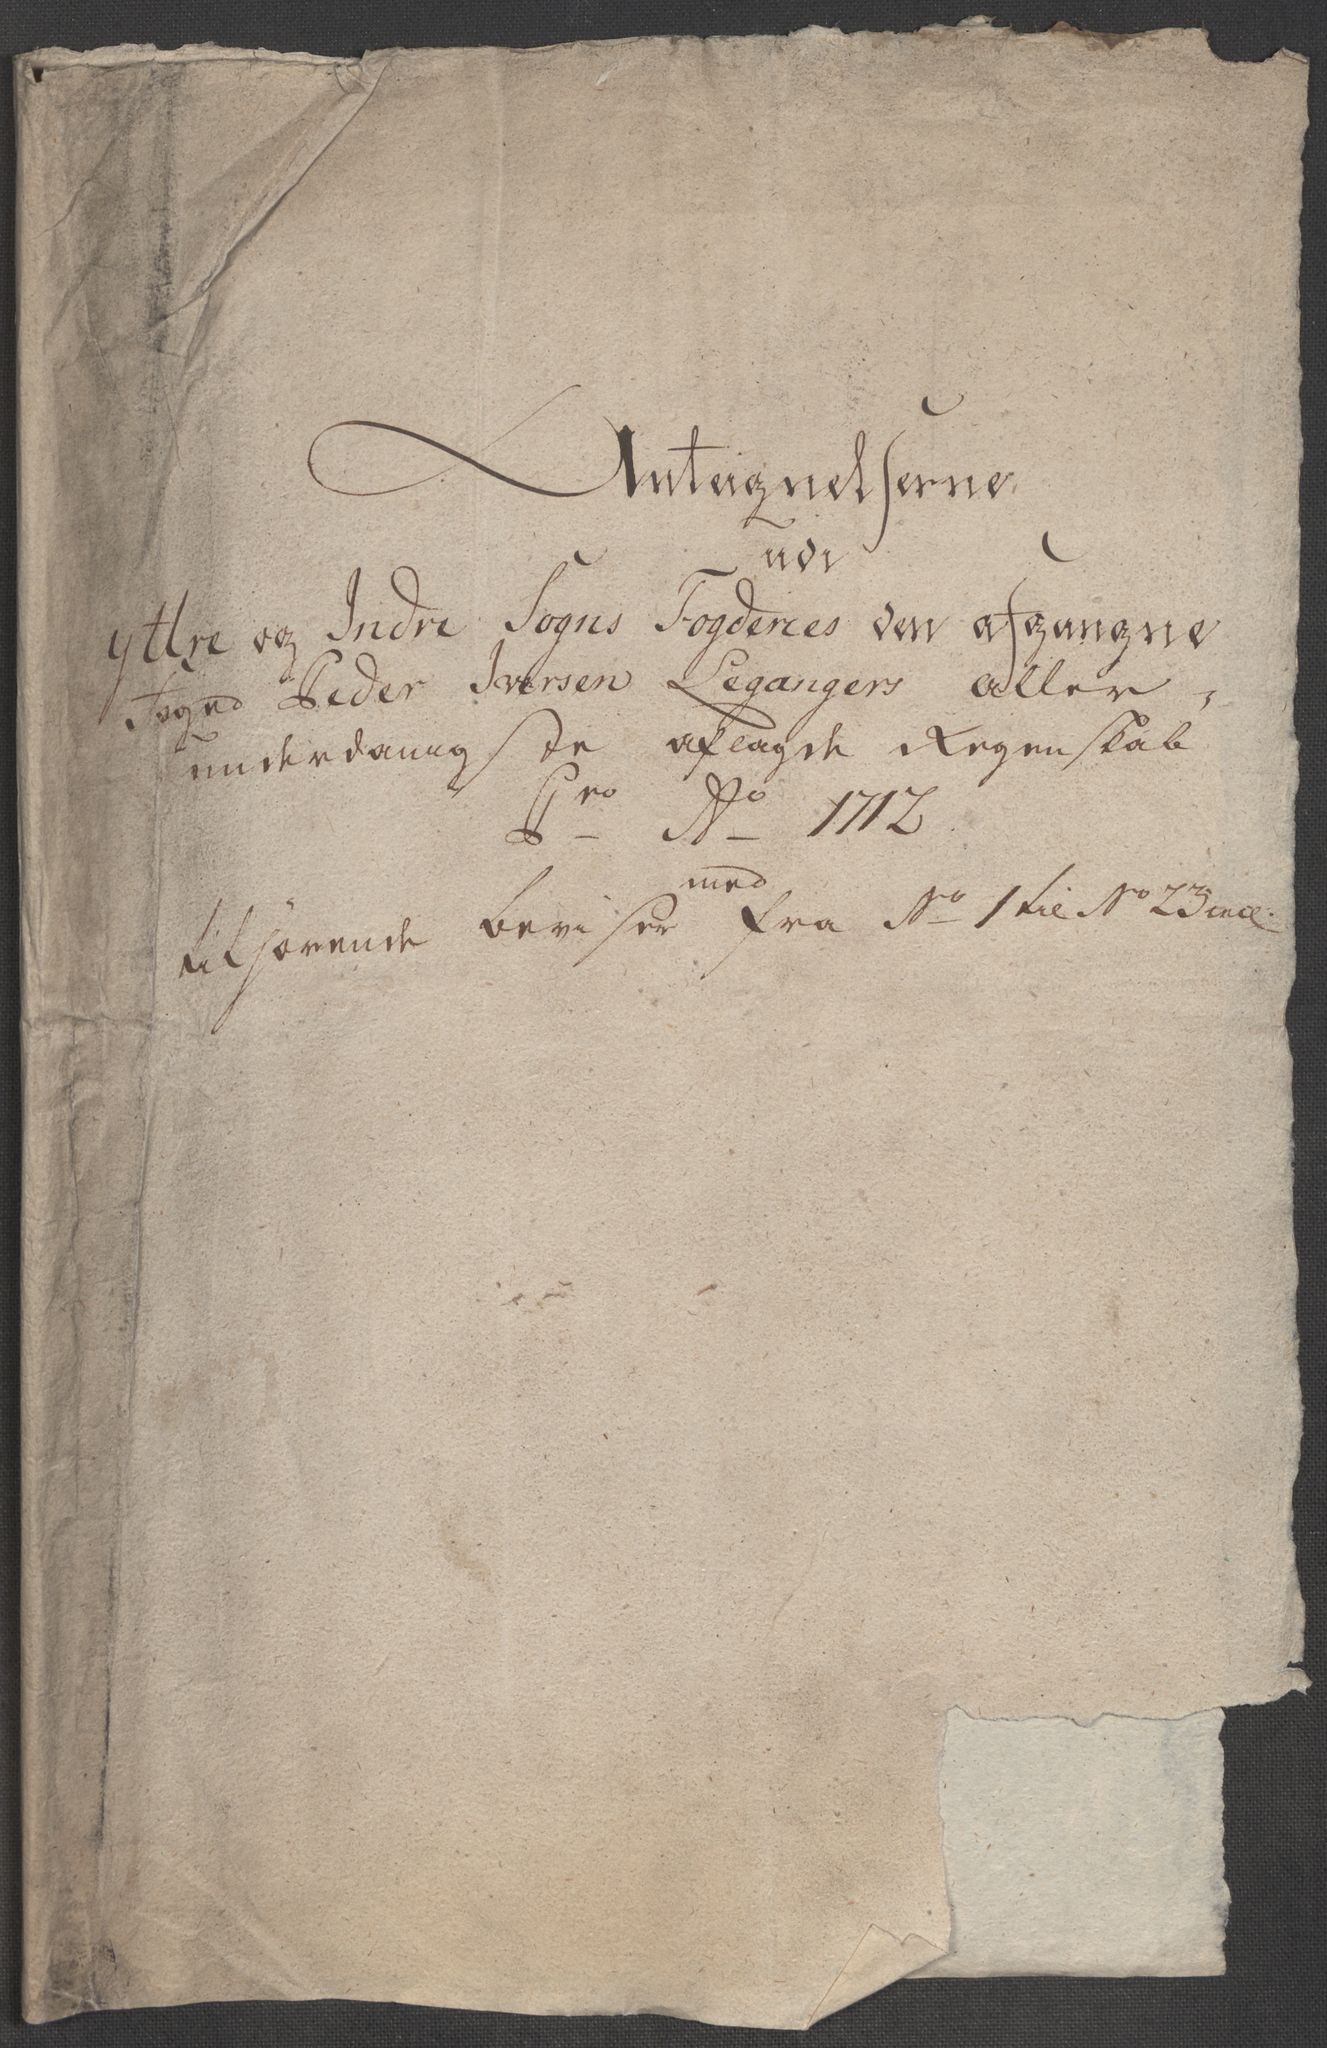 Antegnelserne
udi
Yttre og Indre Sogns Fogderies den afgangne
Foged Peder Iversen Legangers aller-
underdanigste aflagde Regenskab
Pro Ao 1712
med
tilhørende beviser fra No 1 til No 23 incl.